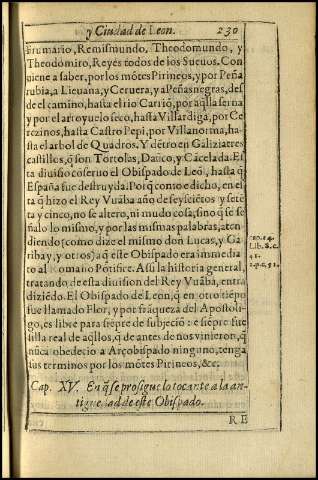 y Ciudad de Leon. 230
brumario, Remismundo, Theodomundo, y
Theodomiro, Reyes todos de los Sueuos. Con
uiene a saber, por los mõtes Pirineos, y por Peña
rubia, a Lieuana, y Ceruera, y a Peñas negras, des
de el camino, hasta el rio Carriõ, por aq̃lla serna
y por el arroyuelo seco, hasta Villardiga, por Ce
rezinos, hasta Castro Pepi, por Villanorma, ha-
sta el arbol de Quadros. Y dẽtro en Galizia tres
castillos, q̃ son Tortolas, Datico, y Cacelada. Es
ta diuisiõ cõseruo el Obispado de Leõ, hasta q̃
España fue destruyda. Porq̃ como e dicho, en es
ta q̃ hizo el Rey Vuãba año de seysciẽtos y sete
ta y cinco, no se altero, ni mudo cosa, sino q̃ se se
ñalo lo mismo, y por las mismas palabras, aten
diendo (como dize el mismo don Lucas, y Ga
ribay, y otros) a q̃ este Obispado era immedia
to al Romano Põtifice. Assi la historia general,
tratando de esta diuision del Rey Vuãba, entra
diziẽdo. El Obispado de Leon, q̃ en otro tiẽpo
fue llamado Flor, y por frãqueza del Apostoli-
go, es libre para siẽpre de subjeciõ: e siẽpre fue
silla real de aq̃llos, q̃ de antes de nos vinieron, q̃
nũca obedecio a Arçobispado ninguno, tenga
sus terminos por los mõtes Pirineos, &c.
Lib. 8. c.
41.
2. p. c. 51.
Cap. XV. En q̃ se prosigue lo tocante a la an-
tiguedad de este Obispado.
RE